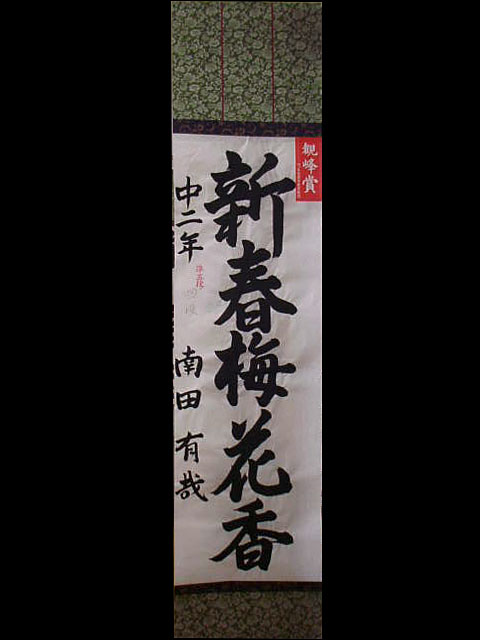 観峰賞
新春梅花香
中二年 南田有哉